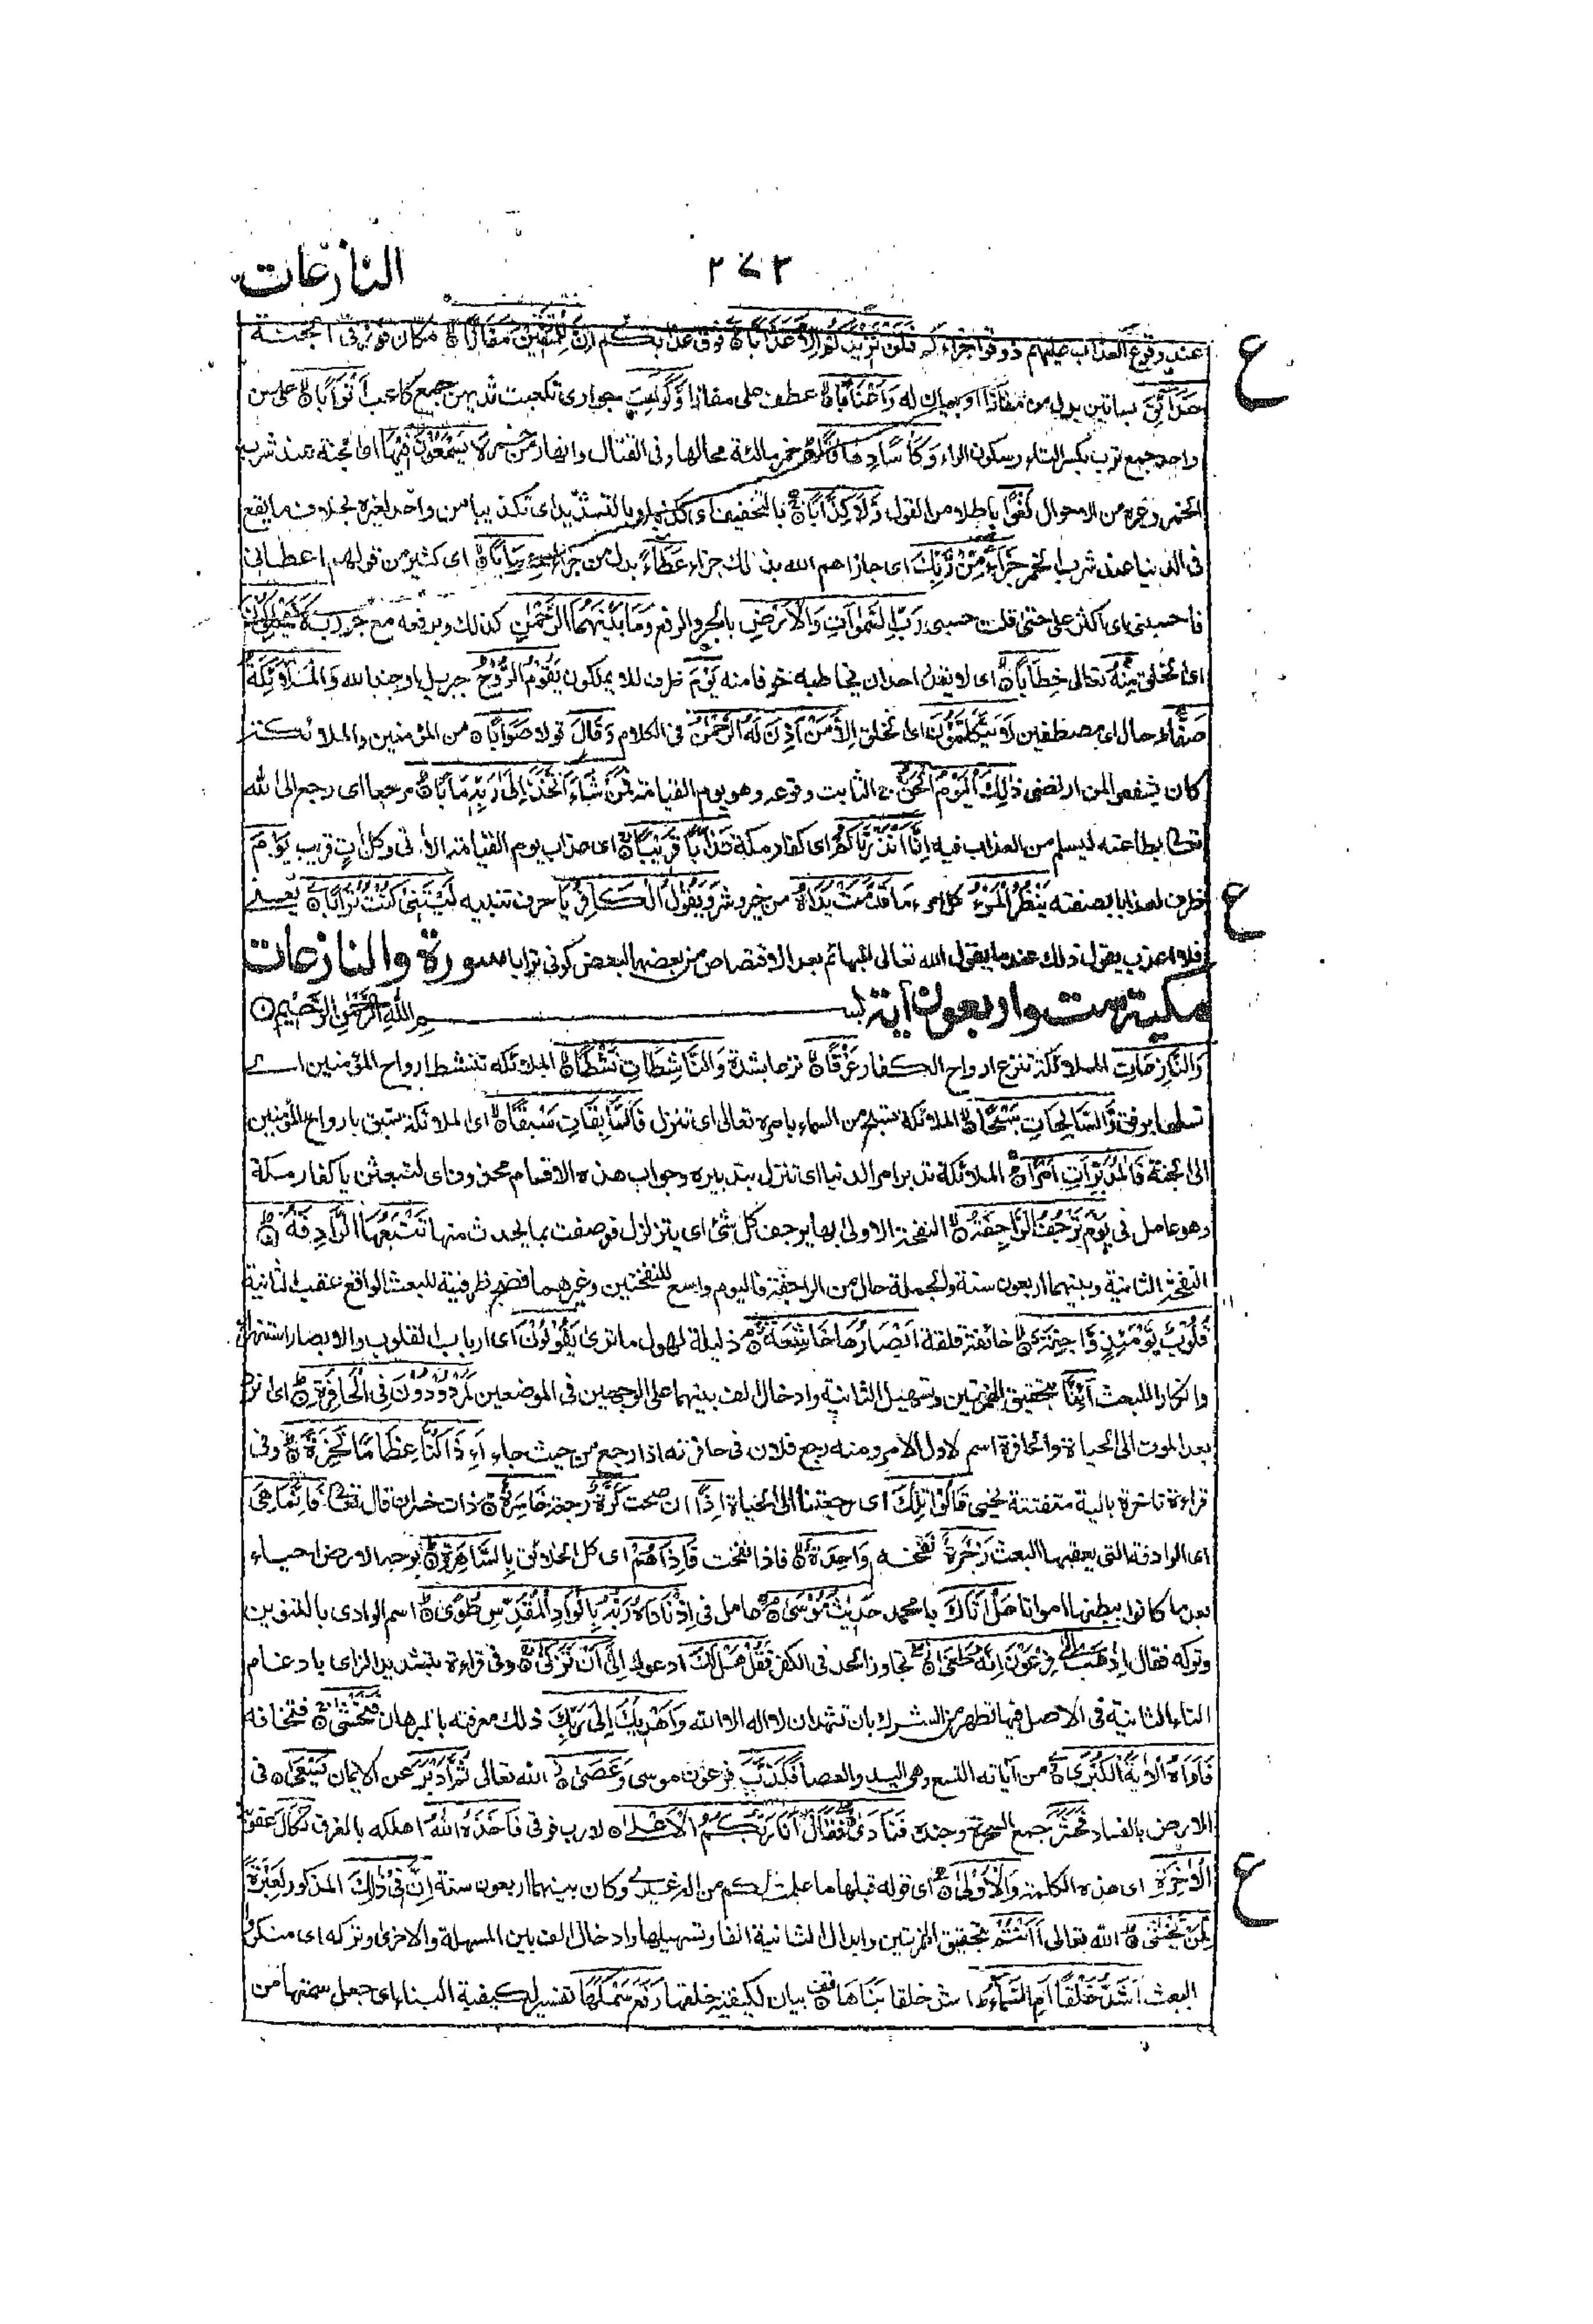 النازعات ٢٧٢
عند وقوع العذاب عليهم ذوقوا جزاءكم فَلَنْ نَزِيْدَكُمْ اِلَّا عَذَابًا فوق عذابكم اِنَّ لِلْمُتَّقِيْنَ مَفَازًا مكان فوز فى الجنة
حَدَآئِقَ بساتين بدل من مفازا او بيان له وَاَعْنَابًا عطف على مفازا وَّكَوَاعِبَ جوارى تكعبت ثديهن جمع كاعب اَتْرَابًا على سن
واحد جمع ترب بكسر التاء وسكون الراء وَكَأْسًا دِهَاقًا خمر مالئة محالها وفى القتال وانهار من خمر لَا يَسْمَعُوْنَ فِيْهَا اى الجنة عند شرب
الخمر وغيره من الاحوال لَغْوًا باطلا من القول وَّلَا كِذَّابًا بالتخفيف اى كذبا وبالتشديد اى تكذيبا من واحد لغيره بخلاف ما يقع
فى الدنيا عند شرب الخمر جَزَآءً مِّنْ رَّبِّكَ اى جازاهم الله بذلك جزاء عَطَآءً بدل من جزاء حِسَابًا اى كثير من قولهم اعطانى
فاحسبنى اى اكثر على حتى قلت حسبى رَبِّ السَّمٰوَاتِ وَالْاَرْضِ بالجر والرفع وَمَا بَيْنَهُمَا الرَّحْمٰنِ كذلك وبرفعه مع جر رب لَا يَمْلِكُوْنَ
اى الخلق مِنْهُ تعالى خِطَابًا اى لا يقدر احد ان يخاطبه خوفا منه يَوْمَ ظرف للا يملكون يَقُوْمُ الرُّوْحُ جبريل او جند الله وَالْمَلٰٓئِكَةُ
صَفًّا حال اى مصطفين لَّا يَتَكَلَّمُوْنَ اى الخلق اِلَّا مَنْ اَذِنَ لَهُ الرَّحْمٰنُ فى الكلام وَقَالَ قولا صَوَابًا من المؤمنين والملائكة
كان يشفعوا لمن ارتضى ذٰلِكَ الْيَوْمُ الْحَقُّ الثابت وقوعه وهو يوم القيامة فَمَنْ شَآءَ اتَّخَذَ اِلٰى رَبِّهٖ مَاٰبًا مرجعا اى رجع الى الله
تعالى بطاعته ليسلم من العذاب فيه اِنَّا اَنْذَرْنَاكُمْ اى كفار مكة عَذَابًا قَرِيْبًا اى عذاب يوم القيامة الاتى وكل ات قريب يَّوْمَ
ظرف لعذابا بصفته يَنْظُرُ الْمَرْءُ كل امرء مَا قَدَّمَتْ يَدَاهُ من خير وشر وَيَقُوْلُ الْكَافِرُ يَا حرف تنبيه لَيْتَنِىْ كُنْتُ تُرَابًا يعنى
فلا اعذب يقول ذلك عند ما يقول الله تعالى للبهائم بعد الاقتصاص من بعضها لبعض كونى ترابا سورة والنازعات
مكية ست واربعون اية بسم الله الرحمن الرحيم
وَالنَّازِعَاتِ الملائكة تنزع ارواح الكفار غَرْقًا نزعا بشدة وَالنَّاشِطَاتِ نَشْطًا الملائكة تنشط ارواح المؤمنين اى
تسلها برفق وَالسَّابِحَاتِ سَبْحًا الملائكة تسبح من السماء بامره تعالى اى تنزل فَالسَّابِقَاتِ سَبْقًا اى الملائكة تسبق بارواح المؤمنين
الى الجنة فَالْمُدَبِّرَاتِ اَمْرًا الملائكة تدبر امر الدنيا اى تنزل بتدبيره وجواب هذه الاقسام محذوف اى لتبعثن يا كفار مكة
وهو عامل فى يَوْمَ تَرْجُفُ الرَّاجِفَةُ النفخة الاولى بها يرجف كل شئ اى يتزلزل فوصفت بما يحدث منها تَتْبَعُهَا الرَّادِفَةُ
النفخة الثانية وبينهما اربعون سنة والجملة حال من الراجفة فاليوم واسع للنفختين وغيرهما فصح ظرفية للبعث الواقع عقيب الثانية
قُلُوْبٌ يَّوْمَئِذٍ وَّاجِفَةٌ خائفة قلقة اَبْصَارُهَا خَاشِعَةٌ ذليلة لهول ما ترى يَقُوْلُوْنَ اى ارباب القلوب والابصار استهزاء
وانكارا للبعث اَئِنَّا بتحقيق الهمزتين وتسهيل الثانية وادخال الف بينهما على الوجهين فى الموضعين لَمَرْدُوْدُوْنَ فِى الْحَافِرَةِ اى نرد
بعد الموت الى الحياة والحافرة اسم لاول الامر ومنه رجع فلان فى حافرته اذا رجع من حيث جاء اَءِذَا كُنَّا عِظَامًا نَّخِرَةً وفى
قراءة ناخرة بالية متفتتة نحيى قَالُوْا تِلْكَ اى رجعتنا الى الحياة اِذًا ان صحت كَرَّةٌ رجعة خَاسِرَةٌ ذات خسران قال تعالى فَاِنَّمَا هِىَ
اى الرادفة التى يعقبها البعث زَجْرَةٌ نفخة وَّاحِدَةٌ فاذا نفخت فَاِذَا هُمْ اى كل الخلائق بِالسَّاهِرَةِ بوجه الارض احياء
بعد ما كانوا ببطنها امواتا هَلْ اَتَاكَ يا محمد حَدِيْثُ مُوْسٰى عامل فى اِذْ نَادَاهُ رَبُّهٗ بِالْوَادِ الْمُقَدَّسِ طُوًى اسم الوادى بالتنوين
وتركه فقال اِذْهَبْ اِلٰى فِرْعَوْنَ اِنَّهٗ طَغٰى تجاوز الحد فى الكفر فَقُلْ هَلْ لَّكَ ادعوك اِلٰى اَنْ تَزَكّٰى وفى قراءة بتشديد الزاى بادغام
التاء الثانية فى الاصل فيها تطهر من الشرك بان تشهد ان لا اله الا الله وَاَهْدِيَكَ اِلٰى رَبِّكَ ادلك معرفته بالبرهان فَتَخْشٰى فتخافه
فَاَرَاهُ الْاٰيَةَ الْكُبْرٰى من آياته التسع وهى اليد والعصا فَكَذَّبَ فرعون موسى وَعَصٰى الله تعالى ثُمَّ اَدْبَرَ عن الايمان يَسْعٰى فى
الارض بالفساد فَحَشَرَ جمع السحرة وجنده فَنَادٰى فَقَالَ اَنَا رَبُّكُمُ الْاَعْلٰى لا رب فوقى فَاَخَذَهُ اللّٰهُ اهلكه بالغرق نَكَالَ عقوبة
الْاٰخِرَةِ اى هذه الكلمة وَالْاُوْلٰى اى قوله قبلها ما علمت لكم من اله غيرى وكان بينهما اربعون سنة اِنَّ فِىْ ذٰلِكَ المذكور لَعِبْرَةً
لِّمَنْ يَّخْشٰى الله تعالى اَاَنْتُمْ بتحقيق الهمزتين وابدال الثانية الفا وتسهيلها وادخال الف بين المسهلة والاخرى وتركه اى منكرو
البعث اَشَدُّ خَلْقًا اَمِ السَّمَآءُ اشد خلقا بَنَاهَا بيان لكيفية خلقها رَفَعَ سَمْكَهَا تفسير لكيفية البناء اى جعل سمتها من
ع
ع
ع